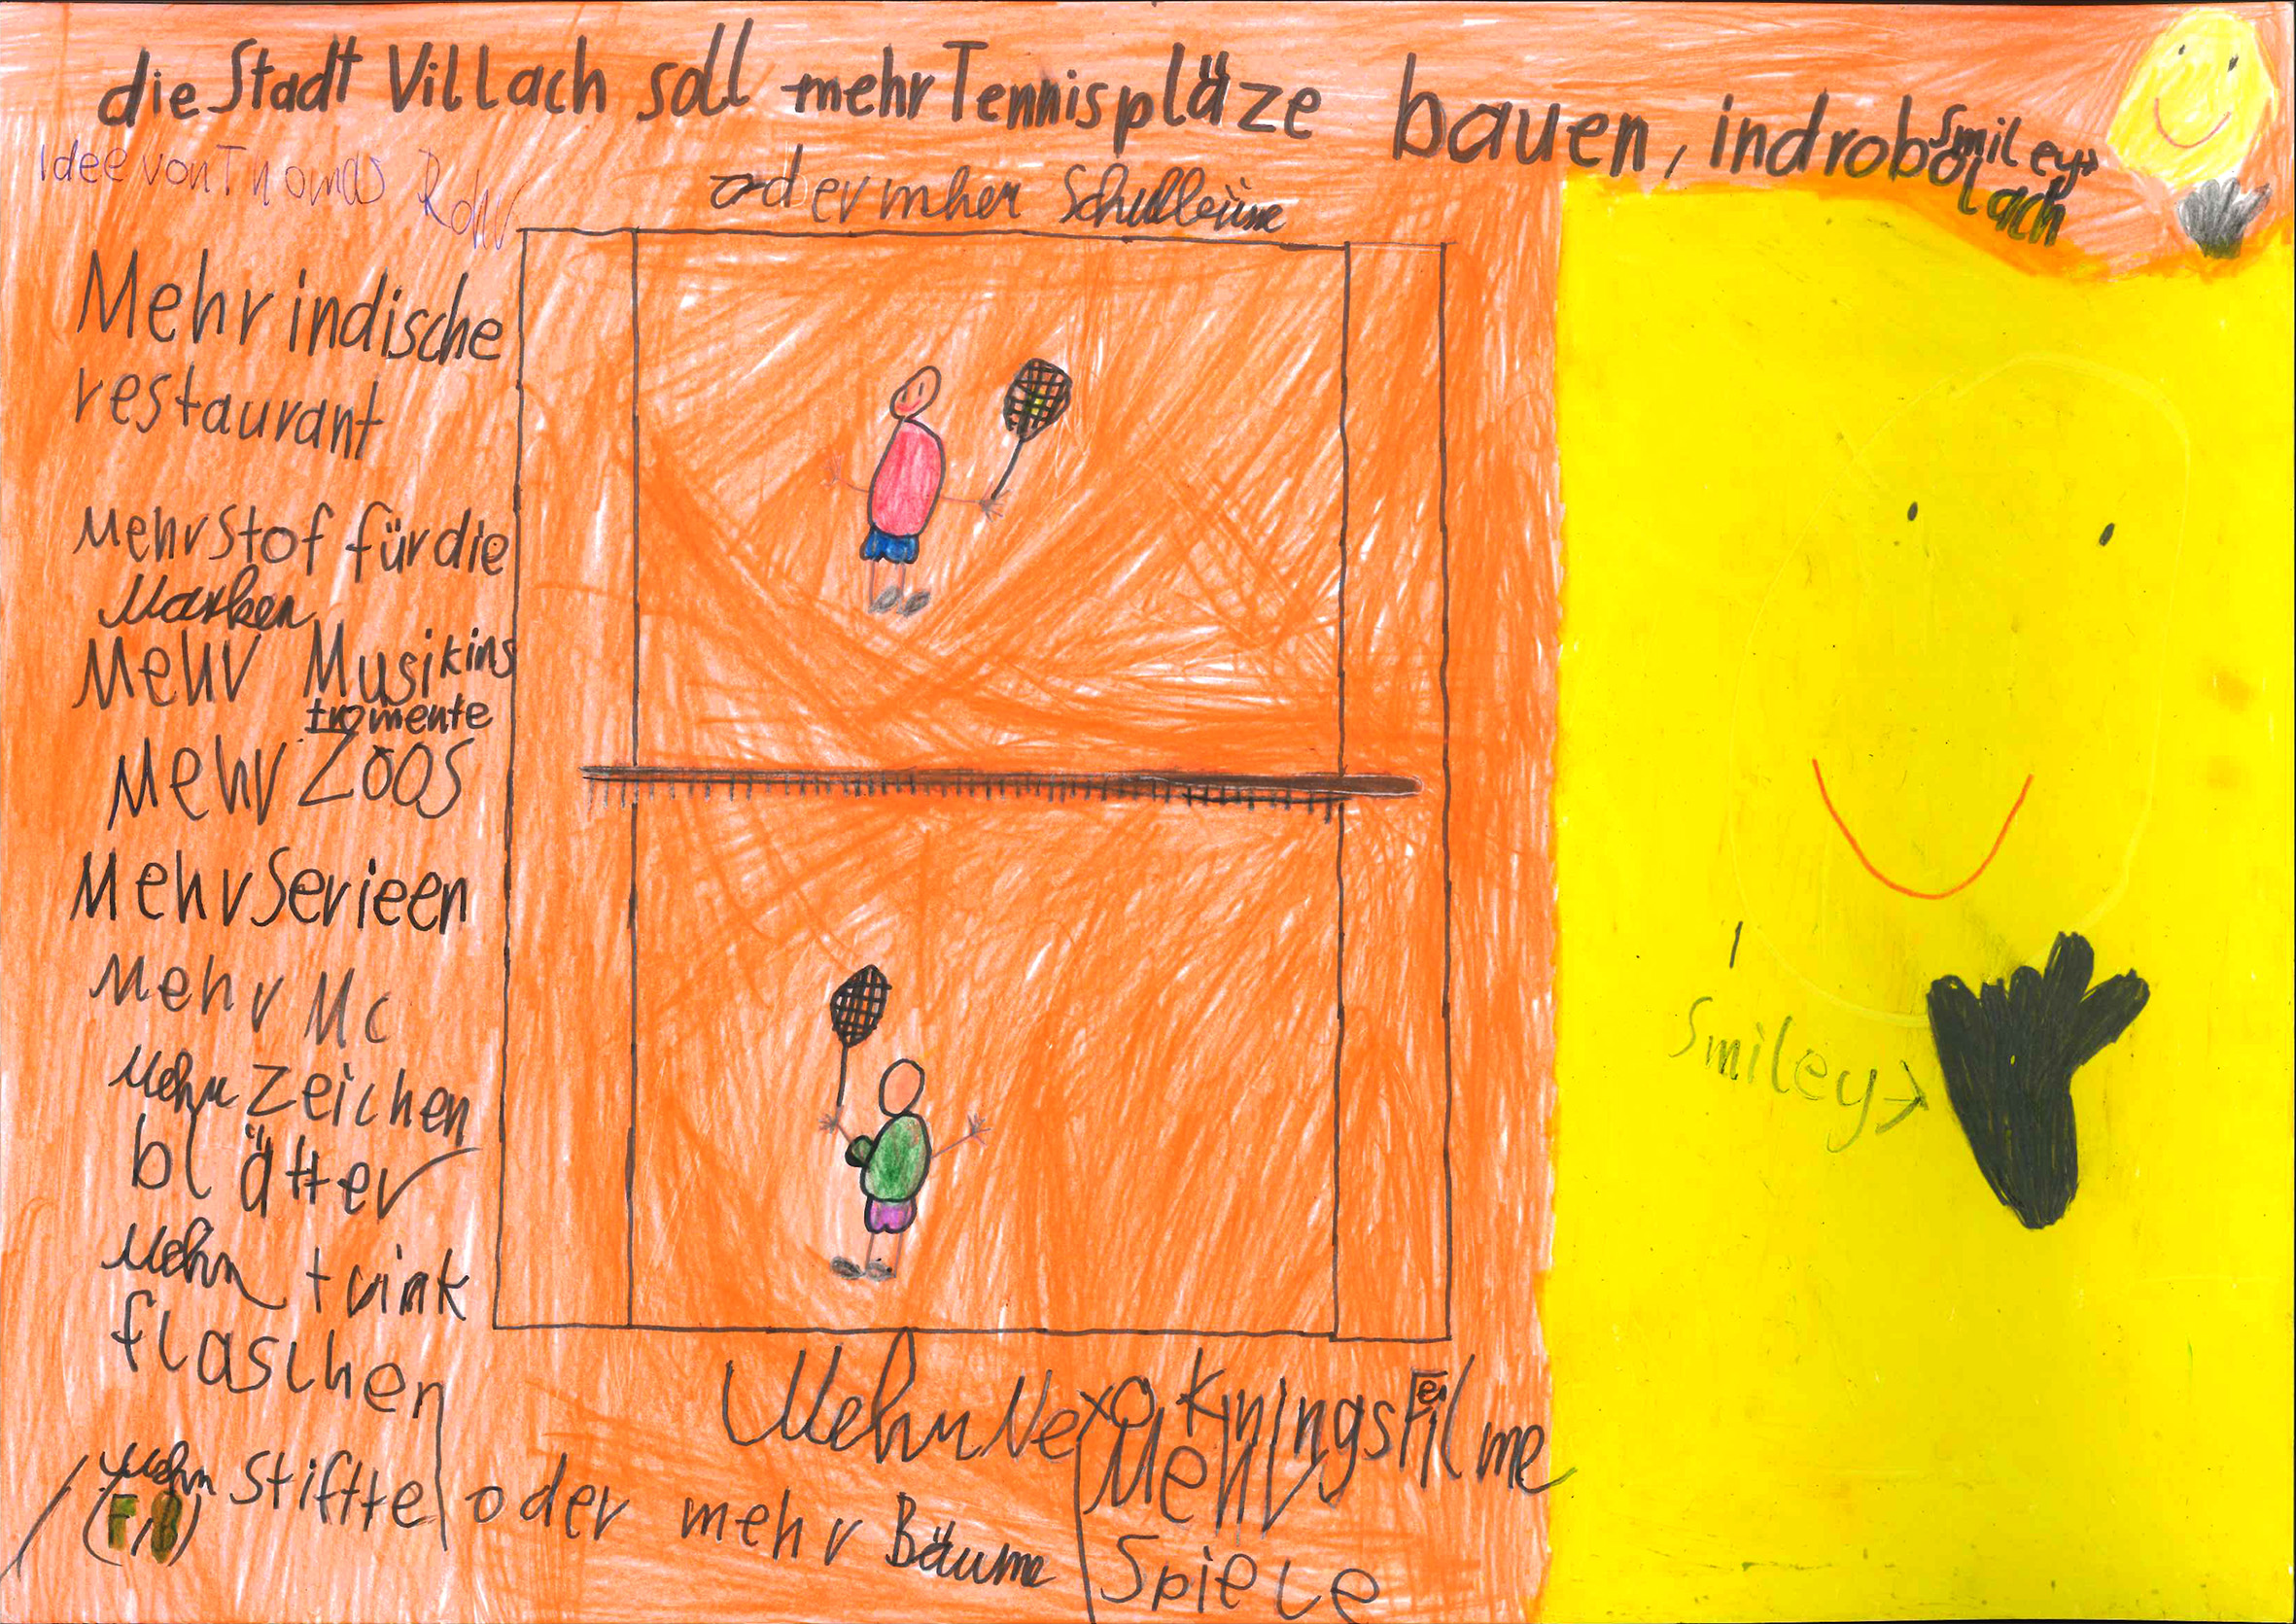 die Stadt Villach soll mehr Tennispläze bauen, indrobolach
Smiley→
Idee von Thomas Rohr
oder mher Schulleüme
Mehr indische
restaurant
Mehr Stof für die
Marken
Mehr Musikins
tromente
Mehr Zoos
Mehr Serieen
Mehr Mc
Mehr Zeichen
blätter
Mehr trink
flaschen
Mehr Stiftte
oder mehr Bäume
Mehr Nexo KningsFilme
Mehr
Spiele
Smiley→